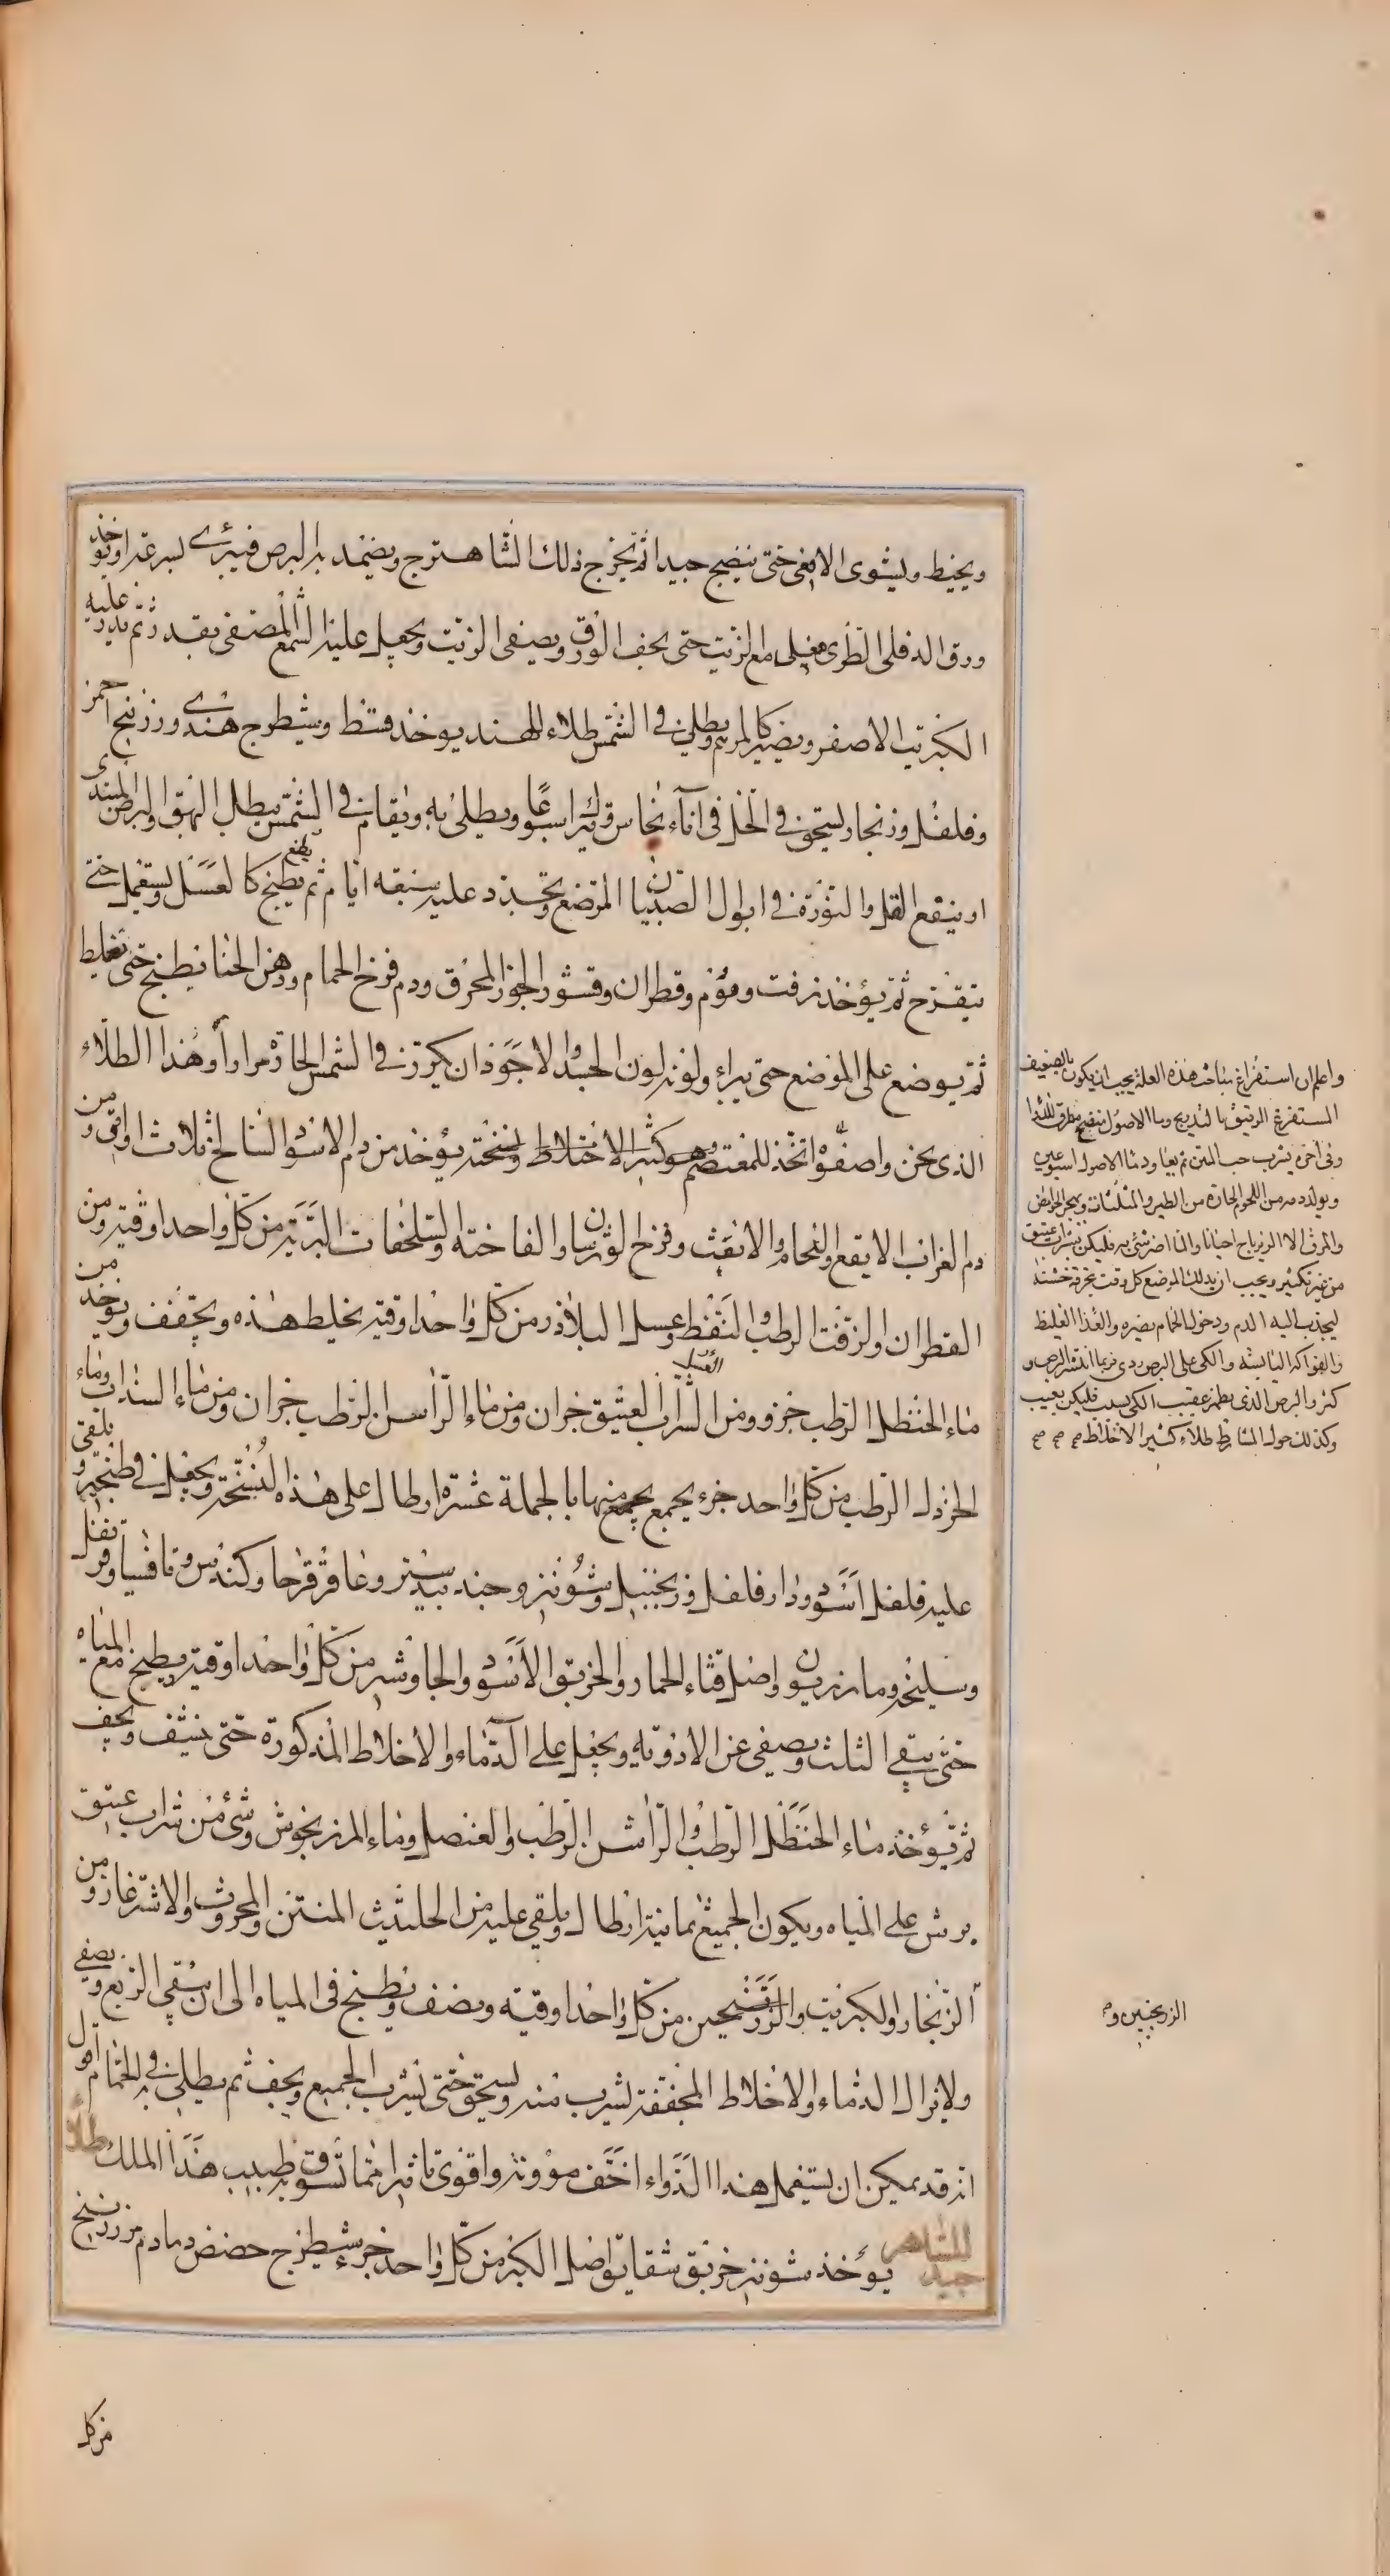 ويخيط ويشوى الافعى حتى ينضج جيدا ثم يخرج ذلك الشاهترج ويضمد به البرص فيبرئ بسرعة او يؤخذ
ورق الدفلى الطرى فيغلى مع الزيت حتى يجف الورق ويصفى الزيت ويجعل عليه الشمع المصفى بقدر ثم يذر عليه
الكبريت الاصفر ويصير كالمرهم ويطلى فى الشمس طلاء للهند يوخذ قسط وشيطرج هندى وزرنيخ احمر
وفلفل وزنجار يسحق فى الخل فى اناء نحاس ويترك اسبوعا ويطلى به ويقام فى الشمس يبطل البهق والبرص المبتدى
او ينقع القلى والنورة فى ابوال الصبيان المرضع ويجدد عليه سبعه ايام ثم يطبخ كالعسل ويستعمل حتى
يتقرح ثم يؤخذ زفت وموم وقطران وقشور الجوز المحرق ودم فرخ الحمام ودهن الحنا يطبخ حتى تغليط
ثم يوضع على الموضع حتى يبراء ولونه لون الجسد والاجود ان يكرر فى الشمس الحارة مرارا وهذا الطلاء
الذى نحن واصفوه اتخذ للمعتصم وهو كثير الاختلاط ونسخته يؤخذ من دم الاسود السالخ ثلاث اواقى ومن
دم الغراب الابقع والنحام والانقث وفرخ الورسان والفاخته والسلحفات البرية من كل واحد اوقية ومن
القطران او لزفت الرطب والنفط وعسل البلاذر من كل واحد اوقية يخلط هذه ويجفف ويوخذ من
ماء الحنظل الرطب جزو ومن الشراب العتيق جزان ومن ماء الراسن الرطب جزان ومن ماء السذاب وماء
الخردل الرطب من كل واحد جزء يجمع يجمع منها بالجملة عشرة ارطال على هذه النسخة ويجعل فى طنجير ويلقى
عليه فلفل اسود ودار فلفل وزنجبيل وشونيز وجند بيدستر وعاقرقرحا وكندس وتافسيا وقرنفل
وسليخه ومازريون واصل قثاء الحمار والخربق الاسود والجاوشير من كل واحد اوقية يطبخ مع المياه
حتى يبقى الثلث ويصفى عن الادويه ويجعل على الدماء والاخلاط المذكورة حتى ينشف ويجف
ثم يؤخذ ماء الحنظل الرطب والراسن الرطب والعنصل وماء المرزنجوش وشئ من شراب عتيق
يرش على المياه ويكون الجميع ثمانية ارطال ويلقى عليه من الحلتيث المنتن والمحروث والاشترغاز ومن
الزنجار والكبريت والزرنيخين من كل واحد اوقيه ونصف ويطبخ فى المياه الى ان يبقى الربع ويصفى
ولا يزال الدماء والاخلاط المجففة يشرب منه ويسحق حتى يشرب الجميع ويجف ثم يطلى فى الحمام اقول
انه قد يمكن ان يستعمل هذا الدواء اخف موونة واقوى تاثيرا مما تسوق به طبيب هذا الملك طلاء
للشاهر جيد يؤخذ شونيز خربق شقايق اصل الكبر من كل واحد جزء شيطرج حضض دمادم زرنيخ
من كل
واعلم ان استفراغ صاحب هذه العلة يجب ان يكون بالضعيف
المستفرغ الرقيق بالتدريج وماء الاصول ينضج
وفى اخره يشرب حب المنتن ثم يعاود ماء الاصول اسبوعين
ويولد دمه من اللحوم الحارة من الطير والمثلثات ويهجر الحوامض
والمرق الا الزيرباج احيانا والماء اضر شئ به فليكن شرابه عتيق
من غير تكثير ويجب ان يدلك الموضع كل وقت بخرقة خشنة
ليجذب اليه الدم ودخول الحمام يضره والغذا الغليظ
والفواكه اليابسه والكى على البرص ردى فربما انتشر البرص و
كثر والبرص الذى يظهر عقيب الكى
وكذلك حول المشارط طلاء كثير الاخلاط صح صح صح
الزرنيخين و